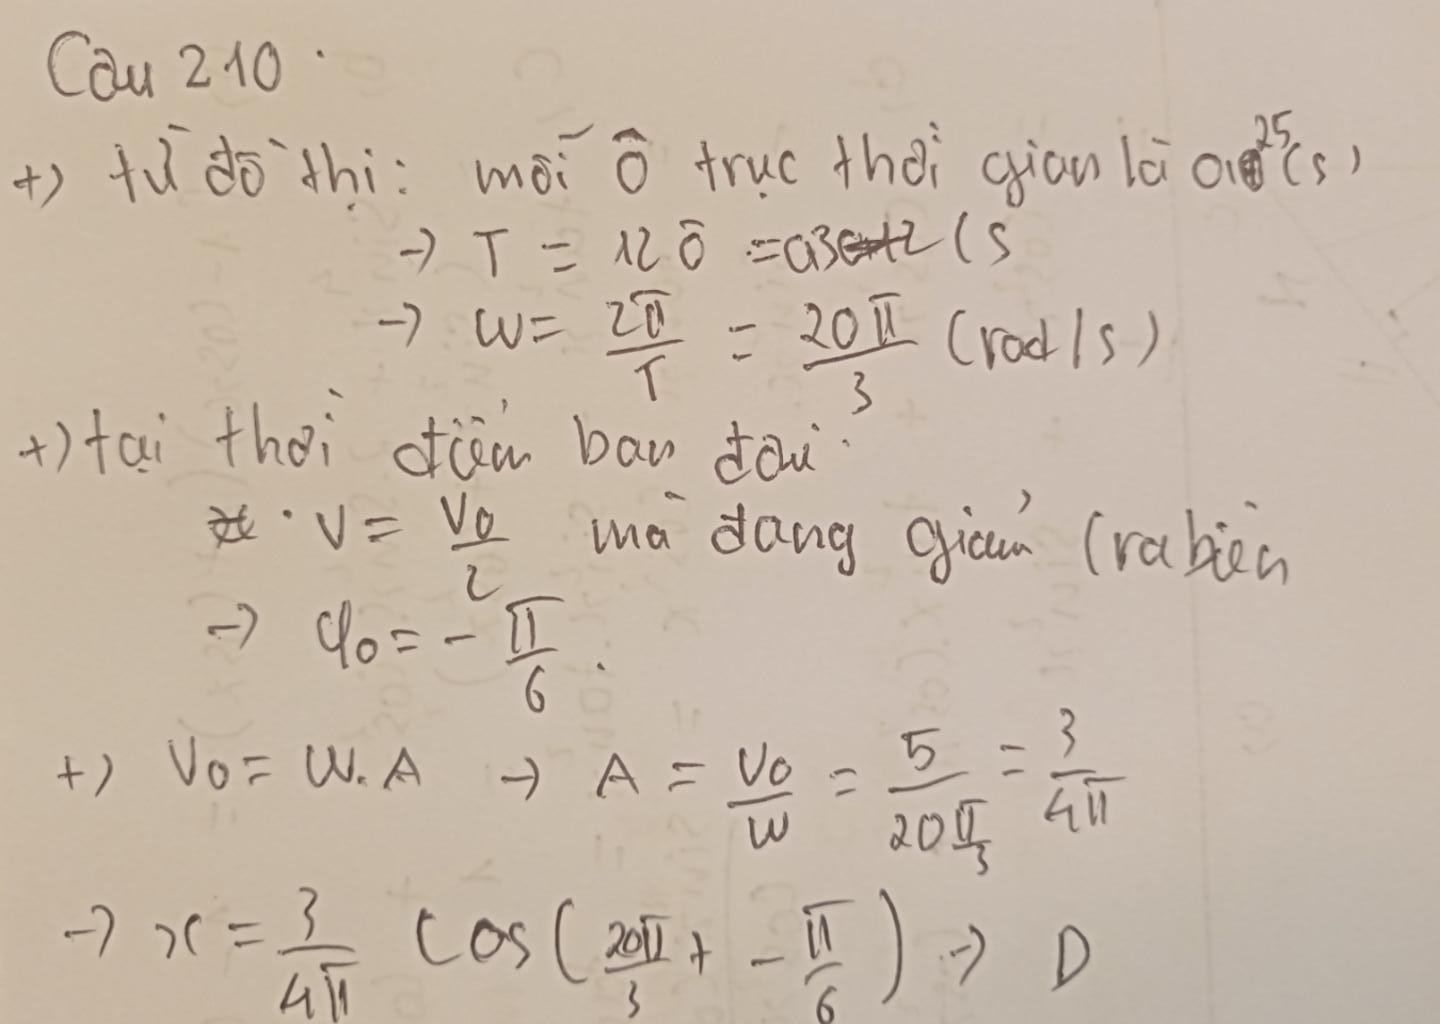 Câu 210.
+) từ đồ thị: mỗi ô trục thời gian là 0,025(s)
→ T = 12 ô = 0,3 (s
→ ω = 2π/T = 20π/3 (rad/s)
+) tại thời điểm ban đầu:
· v = v0/2 mà đang giảm (ra biên
→ φ0 = -π/6.
+) v0 = ω.A → A = v0/ω = 5/(20π/3) = 3/4π
→ x = 3/4π cos(20π/3 t - π/6) → D